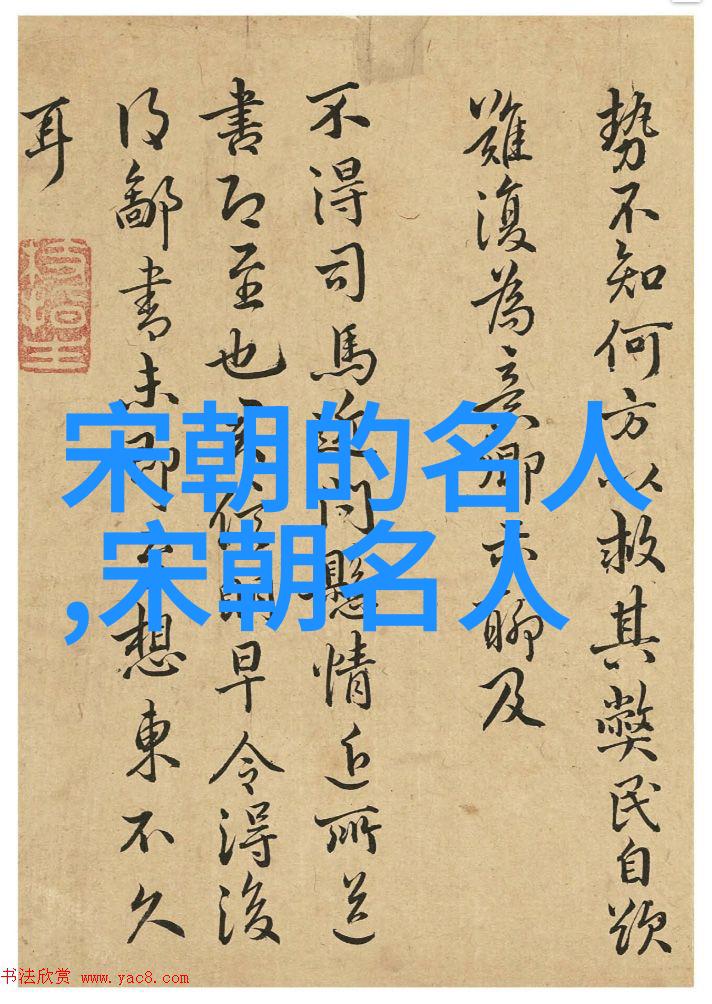 勢不知何方以救其弊民自
難復為意卿聊及
不得司馬近問懸情近所送
書即至也得早令得後
得鄙書未即想東不久
耳
宋朝的名人
,宋朝名人
书法欣赏 www.yac8.com